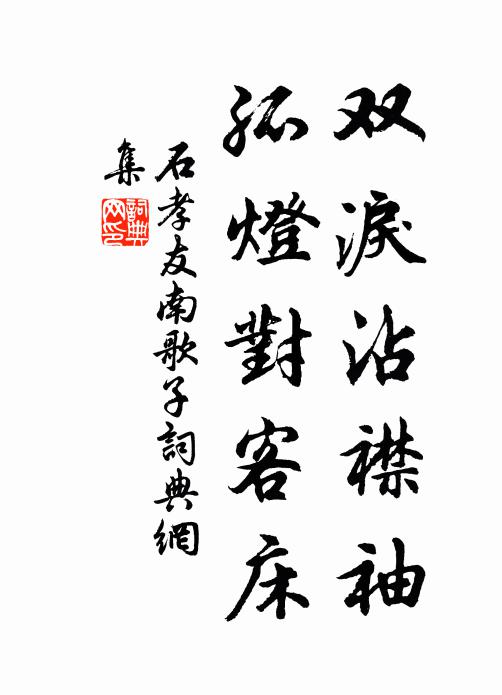 双淚沾襟袖
孤燈對客床
石孝友南歌子詞典網
集
詞典
网印